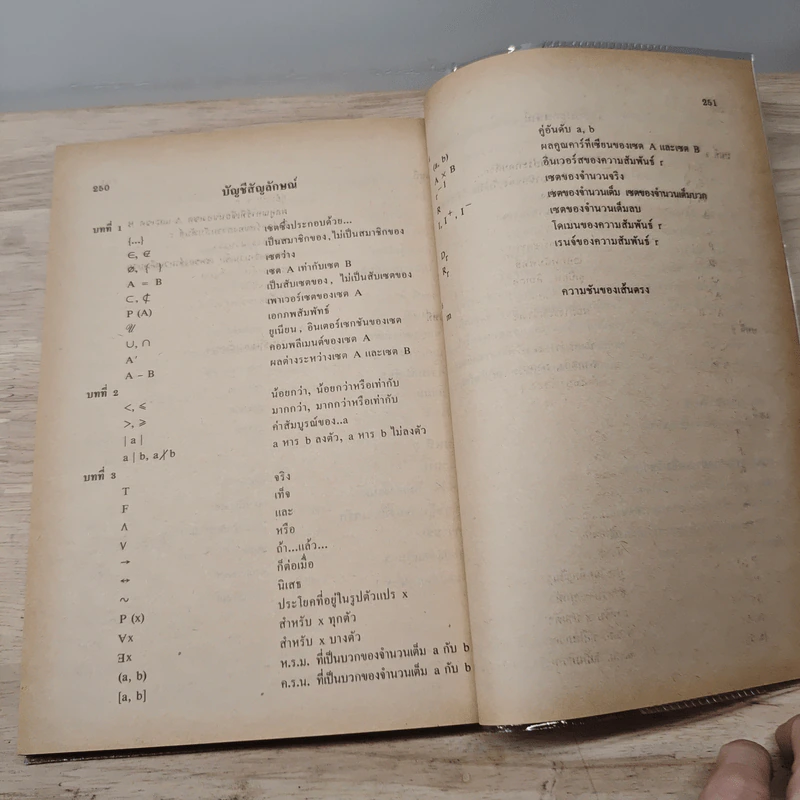 250
บัญชีสัญลักษณ์
บทที่ 1
{...} เซตซึ่งประกอบด้วย...
∈, ∉ เป็นสมาชิกของ, ไม่เป็นสมาชิกของ
∅, { } เซตว่าง
A = B เซต A เท่ากับเซต B
⊂, ⊄ เป็นสับเซตของ, ไม่เป็นสับเซตของ
P (A) เพาเวอร์เซตของเซต A
𝒰 เอกภพสัมพัทธ์
∪, ∩ ยูเนียน, อินเตอร์เซกชันของเซต
A′ คอมพลีเมนต์ของเซต A
A – B ผลต่างระหว่างเซต A และเซต B
บทที่ 2
<, ⩽ น้อยกว่า, น้อยกว่าหรือเท่ากับ
>, ⩾ มากกว่า, มากกว่าหรือเท่ากับ
| a | ค่าสัมบูรณ์ของ..a
a | b, a ∤ b a หาร b ลงตัว, a หาร b ไม่ลงตัว
บทที่ 3
T จริง
F เท็จ
∧ และ
∨ หรือ
→ ถ้า...แล้ว...
↔ ก็ต่อเมื่อ
∼ นิเสธ
P (x) ประโยคที่อยู่ในรูปตัวแปร x
∀x สำหรับ x ทุกตัว
∃x สำหรับ x บางตัว
(a, b) ห.ร.ม. ที่เป็นบวกของจำนวนเต็ม a กับ b
[a, b] ค.ร.น. ที่เป็นบวกของจำนวนเต็ม a กับ b
251
(a, b) คู่อันดับ a, b
A × B ผลคูณคาร์ทีเซียนของเซต A และเซต B
อินเวอร์สของความสัมพันธ์ r
R เซตของจำนวนจริง
I, I⁺, I⁻ เซตของจำนวนเต็ม เซตของจำนวนเต็มบวก
เซตของจำนวนเต็มลบ
Dᵣ โดเมนของความสัมพันธ์ r
Rᵣ เรนจ์ของความสัมพันธ์ r
m ความชันของเส้นตรง